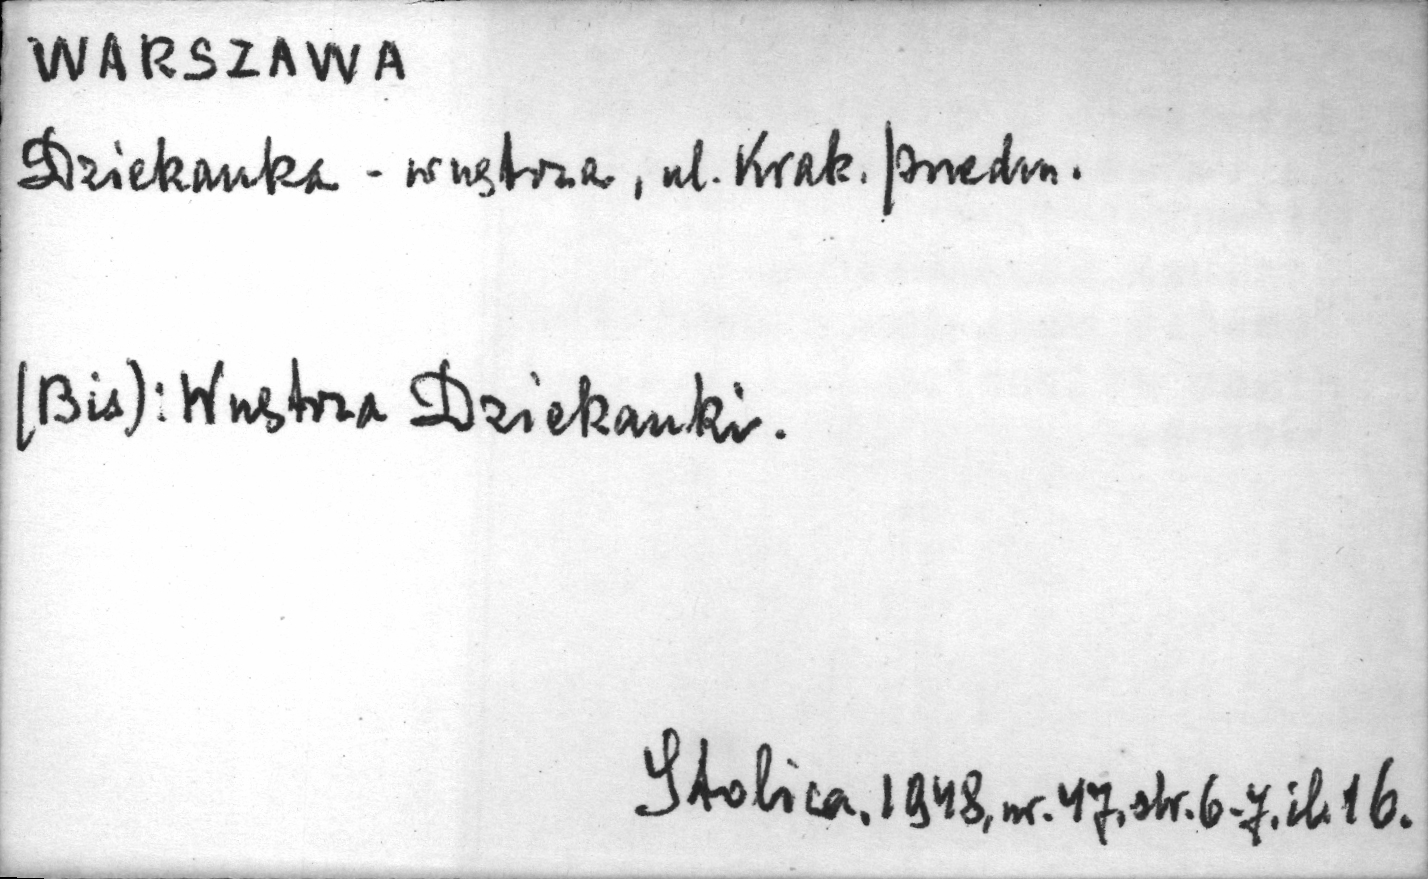 WARSZAWA
Dziekanka - wnętrza, ul. Krak. Przedm.
(Bis): Wnętrza Dziekanki.
Stolica, 1948, nr. 47, str. 6-7, il. 16.